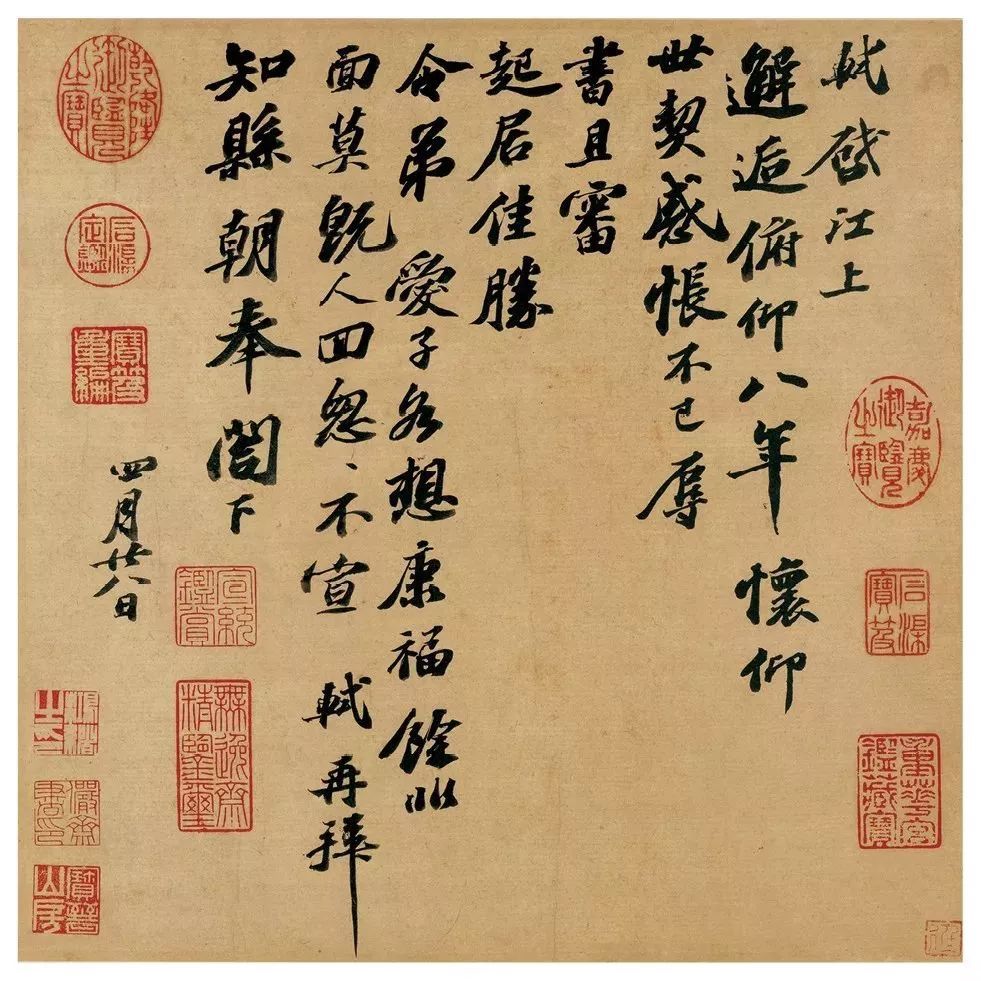 軾啓江上
邂逅俯仰八年懷仰
世契感悵不已辱
書且審
起居佳勝
令弟愛子各想康福餘非
面莫既人回怱、不宣軾再拜
知縣朝奉閤下
四月廿八日
乾隆御覽之寶
石渠定鑑
寶笈重編
嘉慶御覽之寶
石渠寶笈
重華宮鑑藏寶
宣統鑑賞
無逸齋精鑒璽